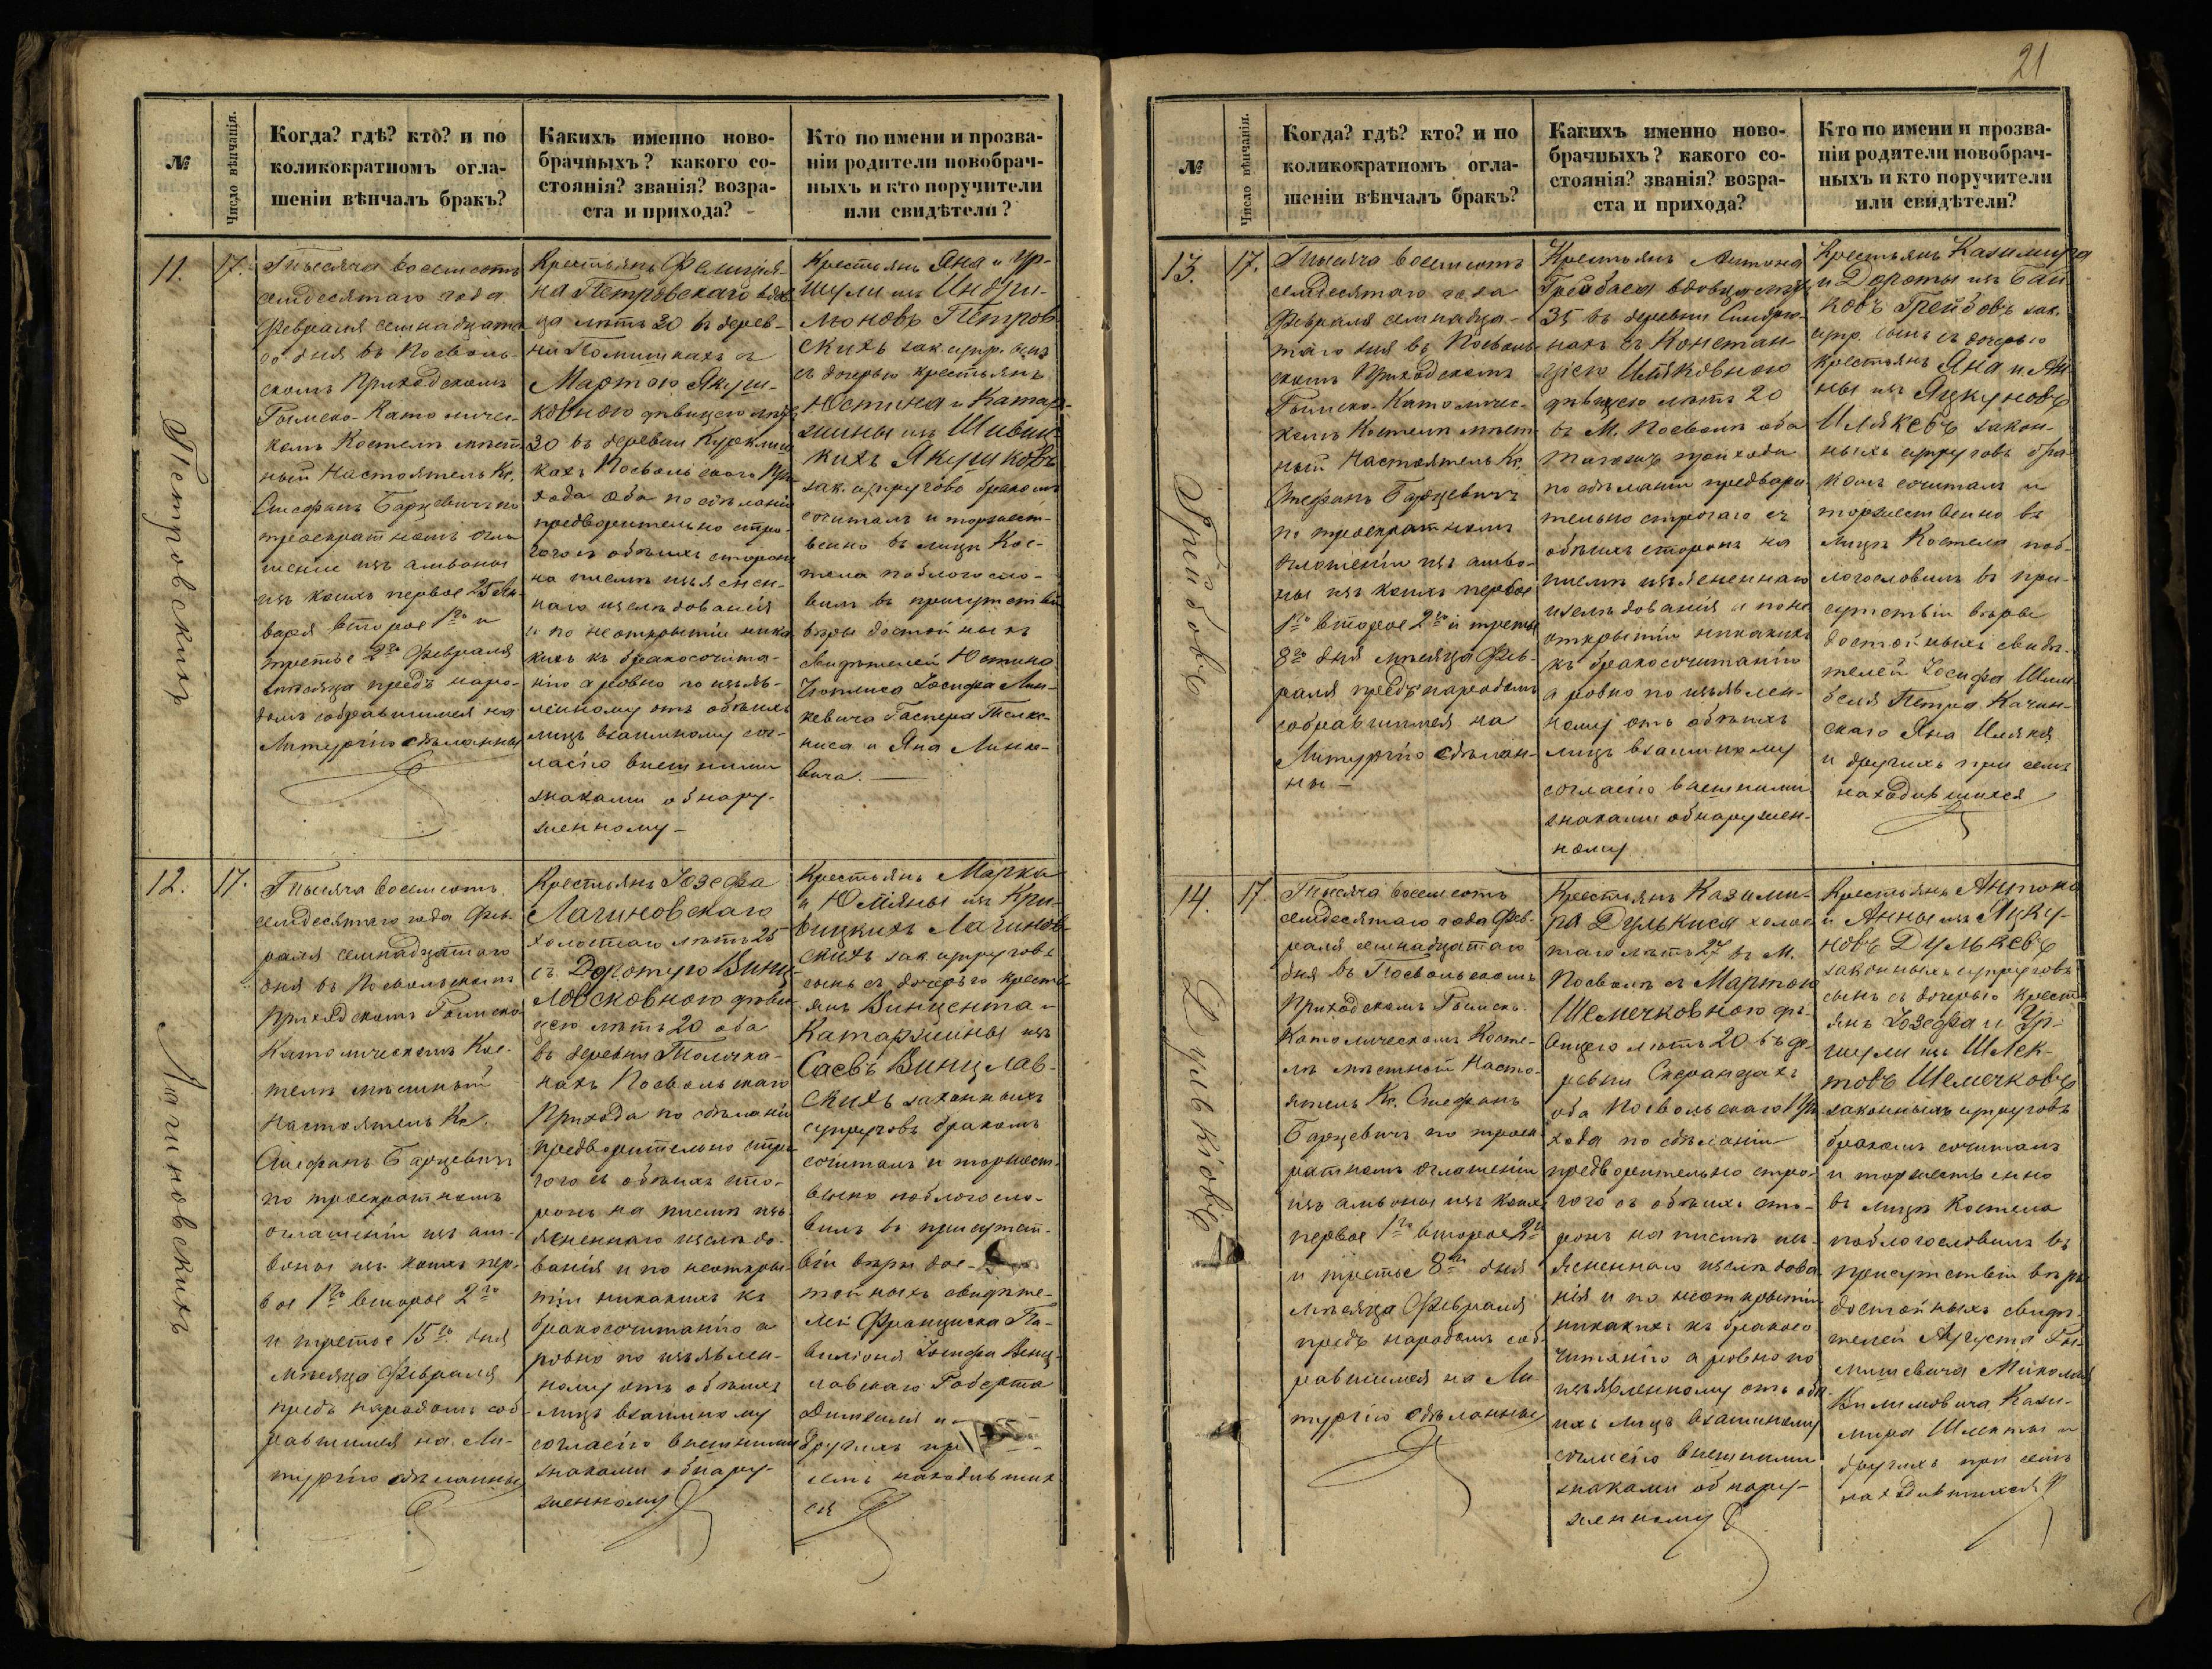 21
№
Число вѣнчанія.
Когда? гдѣ? кто? и по
коликократномъ огла-
шеніи вѣнчалъ бракъ?
Какихъ именно ново-
брачныхъ? какого со-
стоянія? званія? возра-
ста и прихода?
Кто по имени и прозва-
ніи родители новобрач-
ныхъ и кто поручители
или свидѣтели?
11.
17.
Петровскихъ
Тысяча восемсотъ
семдесятаго года
Февраля семнадцата-
го дня въ Посволь-
скомъ Приходскомъ
Римско-Католичес-
комъ Костелѣ мѣст-
ный Настоятель Кс.
Стефанъ Барцевичъ по
троекратномъ огла-
шеніи изъ амвоны
изъ коихъ первое 25 Ян-
варя второе 1го и
третье 2го Февраля
мѣсяца предъ наро-
домъ собравшимся на
Литургію сдѣланны
Крестьянъ Фелиція-
на Петровскаго вдов-
ца лѣтъ 30 въ дерев-
ни съ
Мартою Якуш-
ковною дѣвицею лѣтъ
30 въ деревни
кахъ Посвольскаго При-
хода оба по сдѣланіи
предварительно стро-
гого съ обѣихъ сторонъ
на письмѣ изъяснен-
наго изслѣдованія
и по неоткрытіи ника-
кихъ къ бракосочета-
нію а ровно по изъяв-
ленному отъ обѣихъ
лицъ взаимному сог-
ласію внешними
знаками обнару-
женному
Крестьянъ Яна и Ур-
шули изъ Индри-
люновъ Петров-
скихъ зак. супр. сынъ
съ дочерью крестьянъ
Юстина и Катар-
жины изъ
кихъ Якушковъ
зак. супруговъ бракомъ
сочиталъ и торжест-
венно въ лицѣ Кос-
тела поблагосло-
вилъ въ присутствіи
вѣры достойныхъ
свидѣтелей Юстина
Іосифа Лин-
кевича Гаспера
ниса и Яна Линке-
вича.
12.
17.
Лагиновскихъ
Тысяча восемсотъ
семдесятаго года Фев-
раля семнадцатаго
дня въ Посвольскомъ
Приходскомъ Римско-
Католическомъ Кос-
телѣ мѣстный
Настоятель Кс.
Стефанъ Барцевичъ
по троекратномъ
оглашеніи изъ ам-
воны изъ коихъ пер-
вое 1го второе 2го
и третье 15го дня
мѣсяца Февраля
предъ народомъ соб-
равшимся на Ли-
тургію сдѣланны
Крестьянъ Іозефа
Лагиновскаго
холостаго лѣтъ 25
съ Доротую Винц-
лавсковною дѣви-
цею лѣтъ 20 оба
въ деревни Толочка-
нахъ Посвольскаго
Прихода по сдѣланіи
предварительно стро-
гого съ обѣихъ сто-
ронъ на письмѣ изъ-
ясненнаго изслѣдо-
ванія и по неоткры-
тіи никакихъ къ
бракосочитанію а
ровно по изъявлен-
ному отъ обѣихъ
лицъ взаимному
согласію внешними
знаками обнару-
женному
Крестьянъ Марка
и Юліяны изъ Кри-
вицкихъ Лагинов-
скихъ зак. супруговъ
сынъ съ дочерью кресть-
янъ Винцента и
Катаржины изъ
Саевъ Винцлав-
скихъ законныхъ
супруговъ бракомъ
сочиталъ и торжест-
венно поблагосло-
вилъ въ присутст-
віи вѣры дос-
тойныхъ свидѣте-
лей Франциска Па-
виліоня Іосифа Винц-
лавскаго Роберта
и
другихъ при
семъ находивших-
ся
№
Число вѣнчанія.
Когда? гдѣ? кто? и по
коликократномъ огла-
шеніи вѣнчалъ бракъ?
Какихъ именно ново-
брачныхъ? какого со-
стоянія? званія? возра-
ста и прихода?
Кто по имени и прозва-
ніи родители новобрач-
ныхъ и кто поручители
или свидѣтели?
13.
17.
Грейбовъ
Тысяча восемсотъ
семдесятаго года
Февраля семнадца-
таго дня въ Посволь-
скомъ Приходскомъ
Римско-Католичес-
комъ Костелѣ мѣст-
ный Настоятель Кс.
Стефанъ Барцевичъ
по троекратномъ
оглашеніи изъ амво-
ны изъ коихъ первое
1го второе 2го и третье
8го дня мѣсяца Фев-
раля предъ народомъ
собравшимся на
Литургію сдѣлан-
ны
Крестьянъ Антона
Грейбася вдовца лѣтъ
35 въ деревни
нахъ съ Констан-
ціею Иляковною
дѣвицею лѣтъ 20
въ М. Посволѣ оба
тогожъ прихода
по сдѣланіи предвари-
тельно строгаго съ
обѣихъ сторонъ на
письмѣ изъясненнаго
изслѣдованія и по не-
открытіи никакихъ
къ бракосочитанію
а ровно по изъявлен-
ному отъ обѣихъ
лицъ взаимному
согласію внешними
знаками обнаружен-
ному
Крестьянъ Казимира
и Дороты изъ Бай-
ковъ Грейбовъ зак.
супр. сынъ съ дочерью
крестьянъ Яна и Ан-
ны изъ Яцкуновъ
Илякевъ закон-
ныхъ супруговъ бра-
комъ сочиталъ и
торжественно въ
лицѣ Костела поб-
лагословилъ въ при-
сутствіи вѣры
достойныхъ свидѣ-
телей Іосифа
Петра Качин-
скаго Яна Илякя
и другихъ при семъ
находившихся
14.
17.
Дулькіовъ
Тысяча восемсотъ
семдесятаго года Фев-
раля семнадцатаго
дня въ Посвольскомъ
Приходскомъ Римско-
Католическомъ Косте-
лѣ мѣстной Насто-
ятель Кс. Стефанъ
Барцевичъ по троек-
ратномъ оглашеніи
изъ амвоны изъ коихъ
первое 1го второе 2го
и третье 8го дня
мѣсяца Февраля
предъ народомъ соб-
равшимся на Ли-
тургію сдѣланны
Крестьянъ Казими-
ра Дулькиса холос-
таго лѣтъ 27 въ М.
Посволѣ съ Мартою
Шемечковною дѣ-
вицею лѣтъ 20 въ де-
ревни
оба Посвольскаго При-
хода по сдѣланіи
предварительно стро-
гого съ обѣихъ сто-
ронъ на письмѣ изъ-
ясненнаго изслѣдова-
нія и по неоткрытіи
никакихъ къ бракосо-
читанію а ровно по
изъявленному отъ обѣ-
ихъ лицъ взаимному
согласію внешними
знаками обнару-
женному
Крестьянъ Антона
и Анны изъ Яцку-
новъ Дулькевъ
законныхъ супруговъ
сынъ съ дочерью кресть-
янъ Іозефа и Ур-
шули изъ Шлек-
товъ Шемечковъ
законныхъ супруговъ
бракомъ сочиталъ
и торжественно
въ лицѣ Костела
поблагословилъ въ
присутствіи вѣры
достойныхъ свидѣ-
телей Августа
Миколая
Климовича Кази-
мира Шлекты и
другихъ при семъ
находившихся